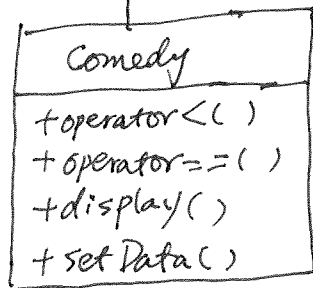 Comedy
+operator<()
+operator==()
+display()
+setData()